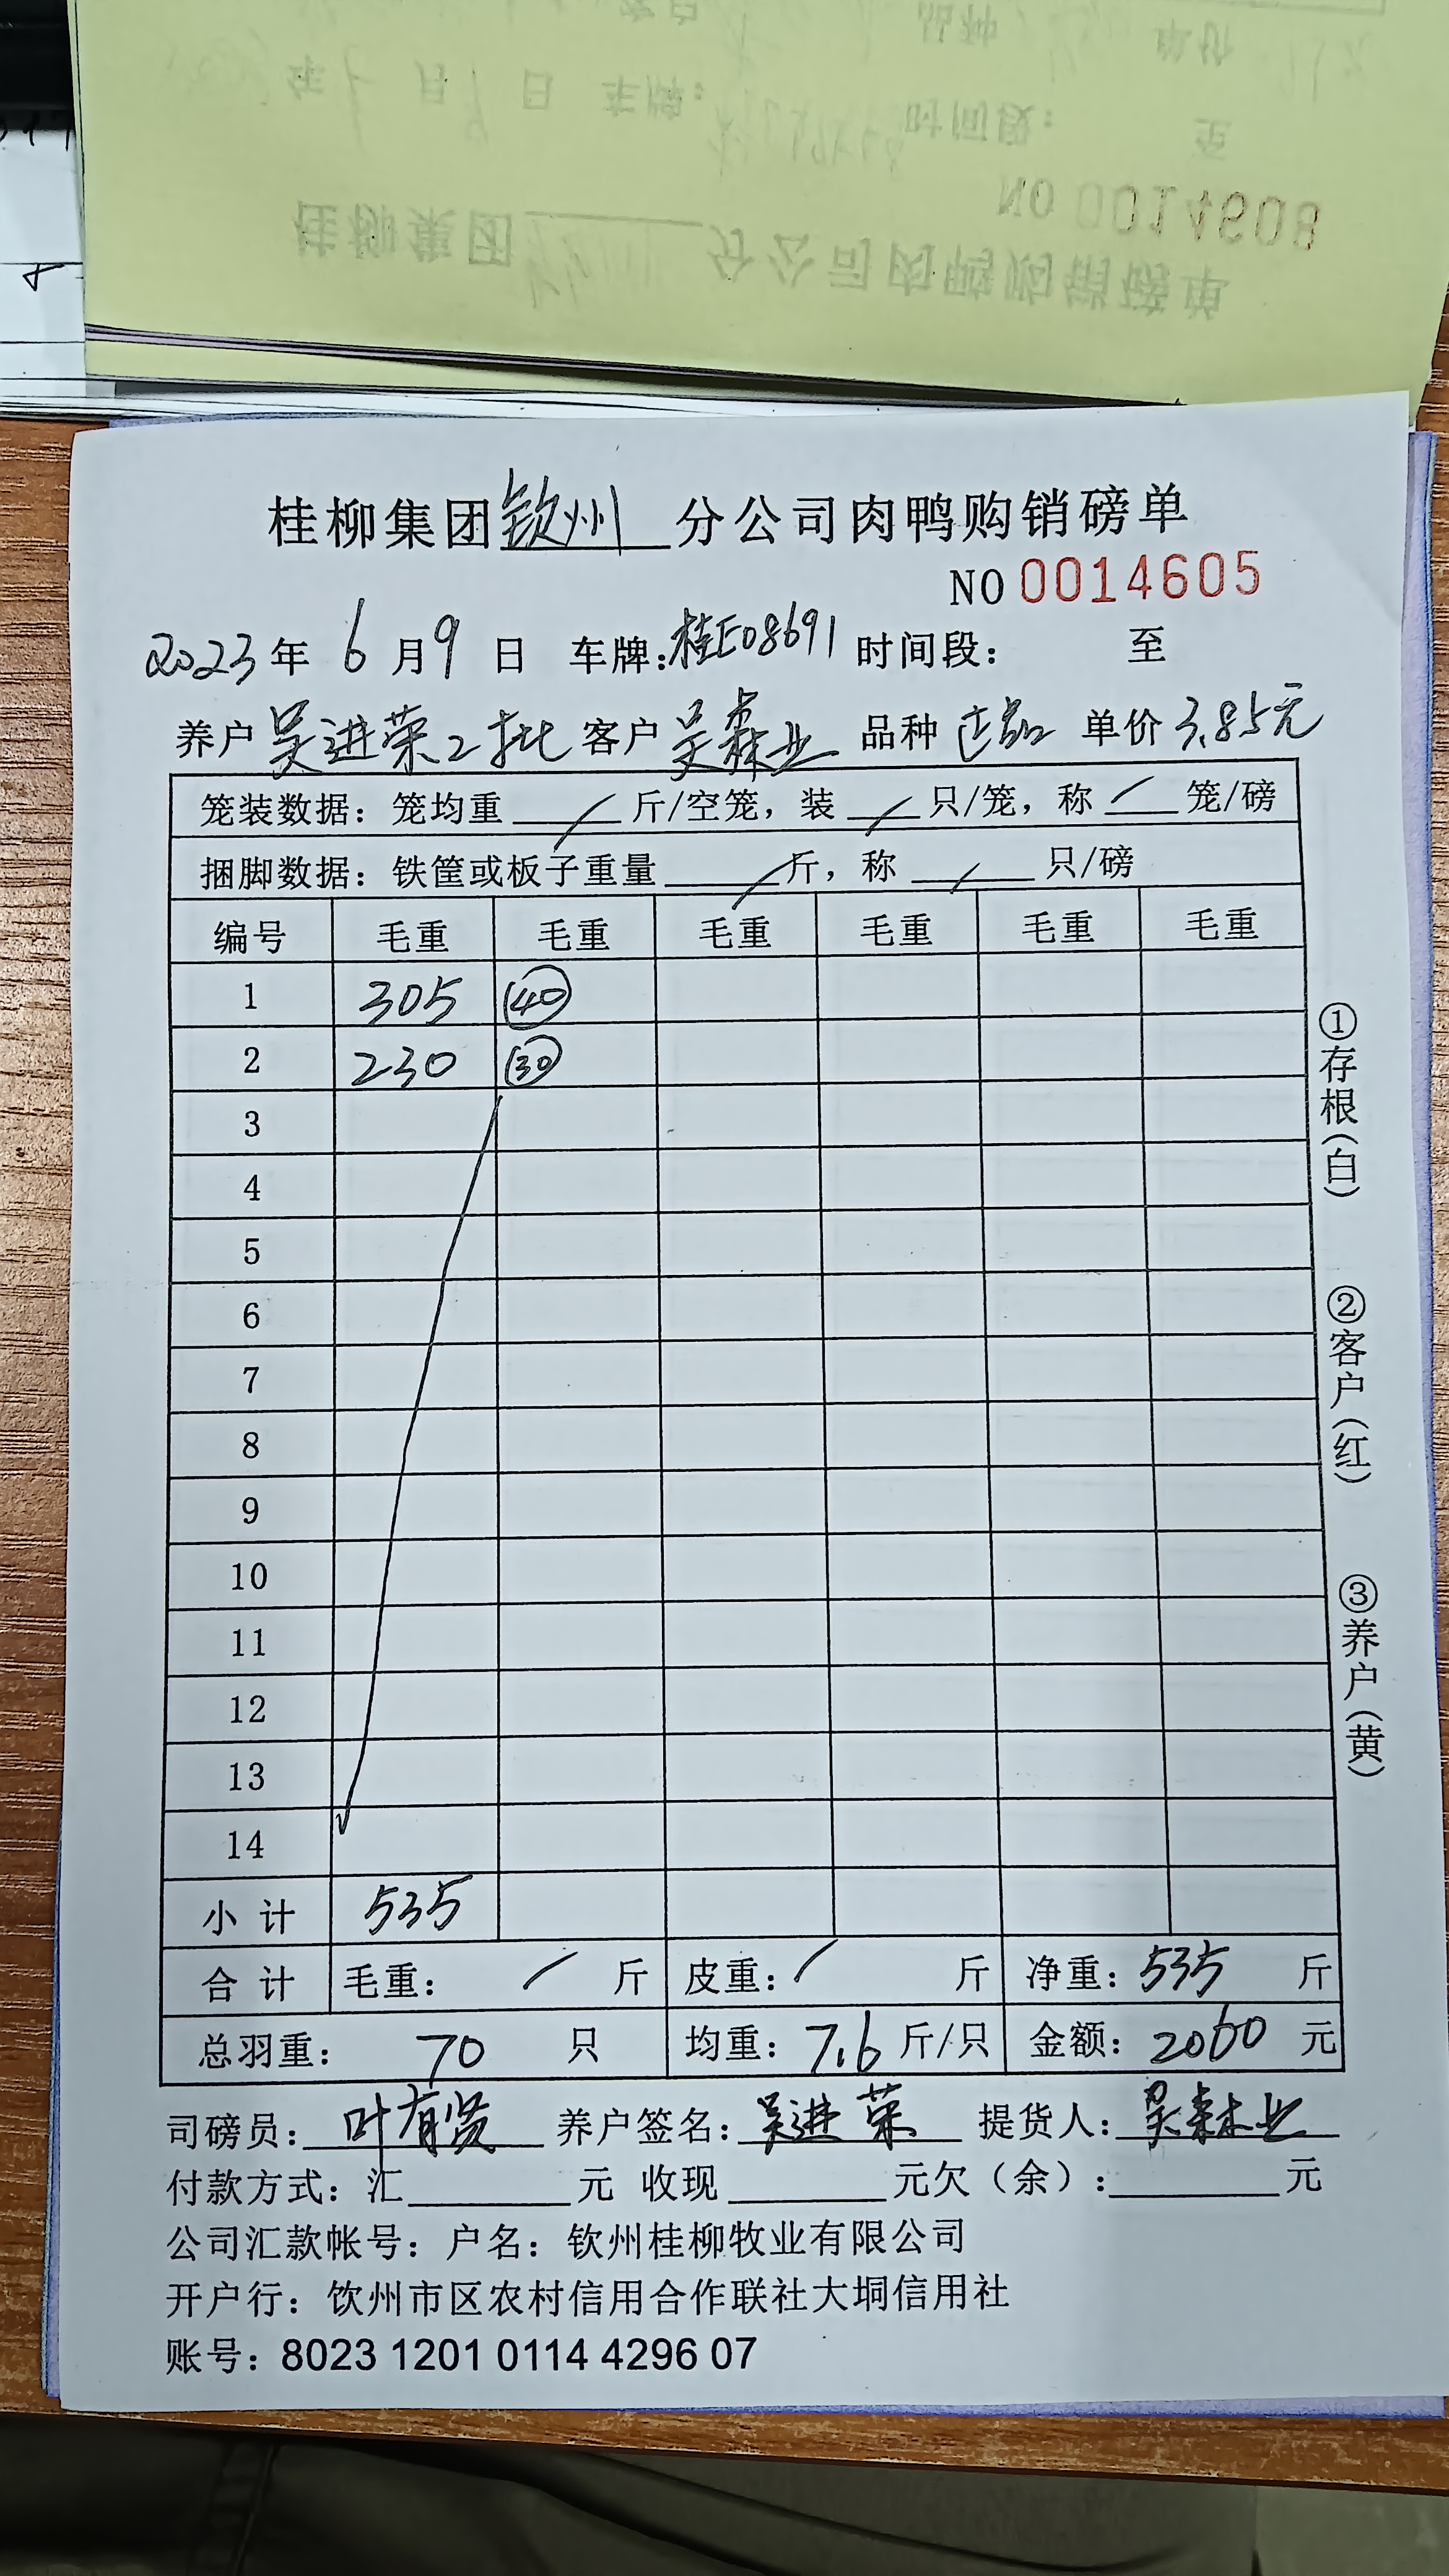 桂柳集团钦州分公司肉鸭购销磅单
NO 0014605
2023年6月9日 车牌:桂E08691 时间段: 至
养户 吴进荣2批 客户 吴森业 品种 单价 3.85元
笼装数据: 笼均重 / 斤/空笼, 装 / 只/笼, 称 / 笼/磅
捆脚数据: 铁筐或板子重量 / 斤, 称 / 只/磅
编号 毛重 毛重 毛重 毛重 毛重 毛重
1 305 40
2 230 30
3
4
5
6
7
8
9
10
11
12
13
14
小计 535
合计 毛重: / 斤 皮重: / 斤 净重: 535 斤
总羽重: 70 只 均重: 7.6 斤/只 金额: 2060 元
司磅员: 叶有贤 养户签名: 吴进荣 提货人: 吴森业
付款方式: 汇 元 收现 元欠(余): 元
公司汇款帐号: 户名: 钦州桂柳牧业有限公司
开户行: 饮州市区农村信用合作联社大垌信用社
账号: 8023 1201 0114 4296 07
①存根(白)
②客户(红)
③养户(黄)